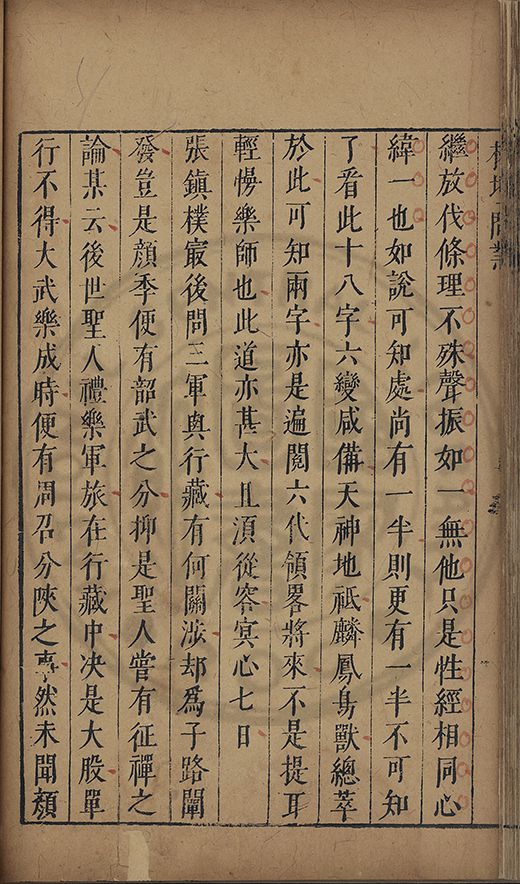 繼放伐條理不殊聲振如一無他只是性經相同心
緯一也如說可知處尚有一半則更有一半不可知
了看此十八字六變咸備天神地祗麟鳳鳥獸總萃
於此可知兩字亦是遍閱六代領畧將來不是提耳
輕慢樂師也此道亦甚大且須從容冥心七日
張鎮樸最後問三軍與行藏有何關涉却爲子路闡
發豈是顔季便有韶武之分抑是聖人嘗有征禪之
論某云後世聖人禮樂軍旅在行藏中决是大股單
行不得大武樂成時便有周召分陜之事然未聞顔